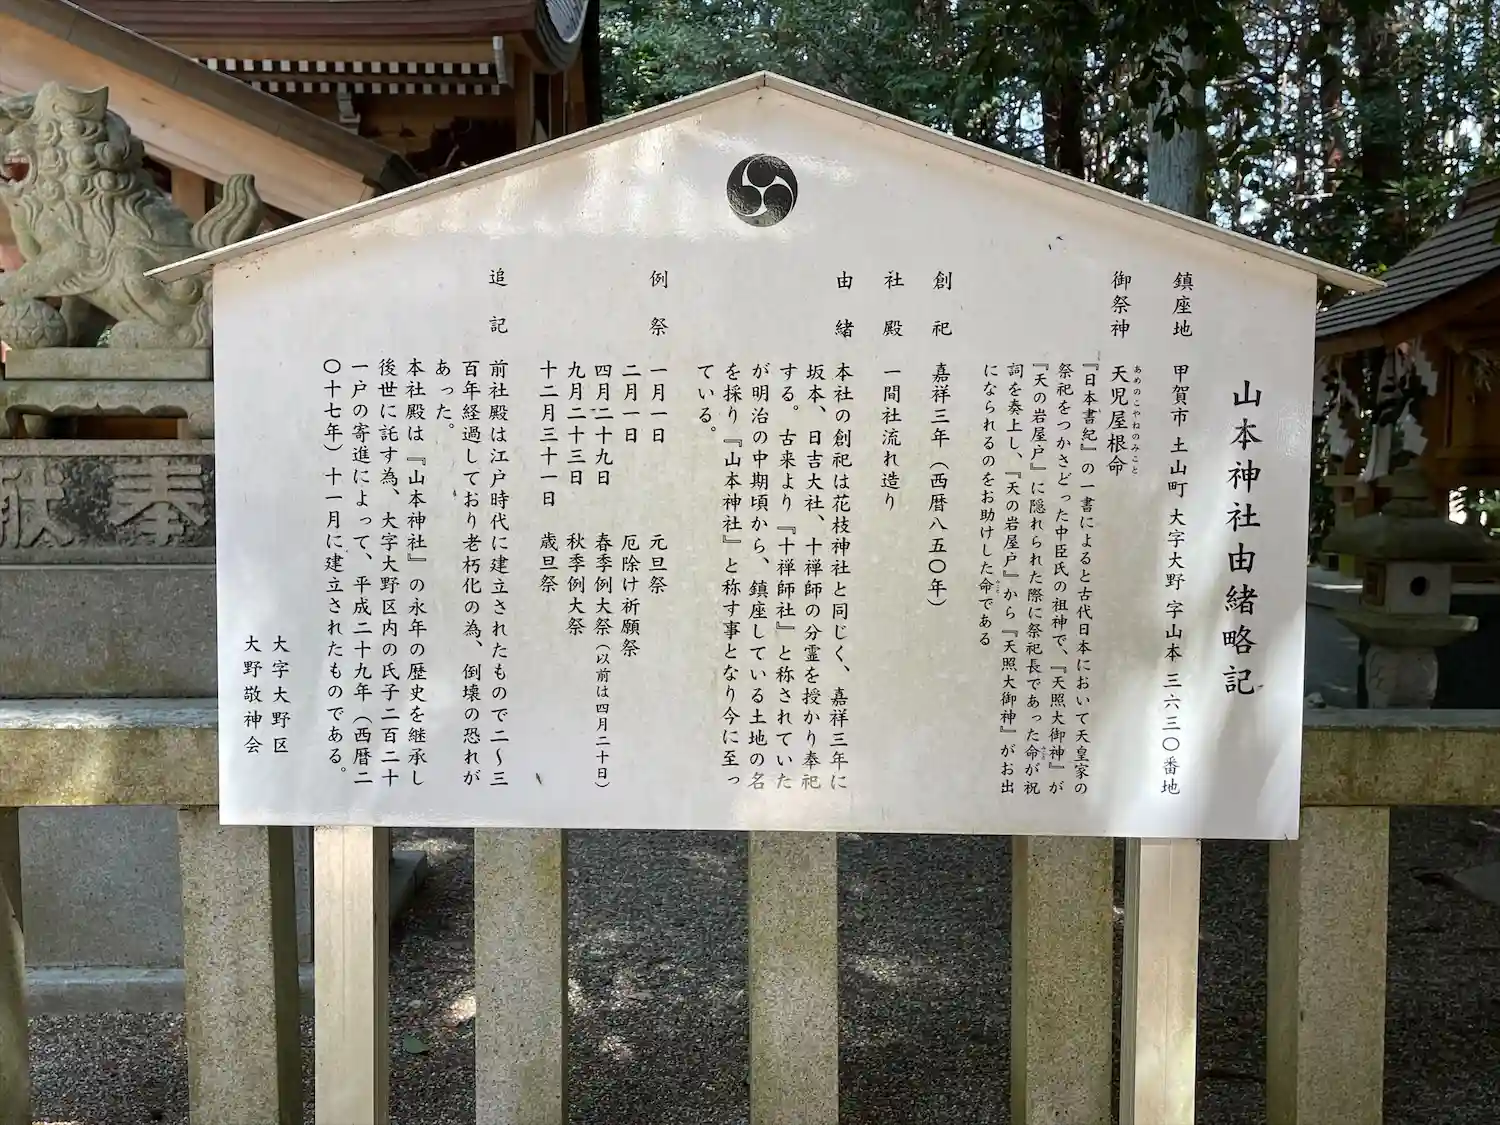 山本神社由緒略記
鎮座地 甲賀市 土山町 大字大野 字山本 三六三〇番地
御祭神 天児屋根命
あめのこやねのみこと
『日本書紀』の一書によると古代日本において天皇家の
祭祀をつかさどった中臣氏の祖神で、『天照大御神』が
『天の岩屋戸』に隠れられた際に祭祀長であった命が祝
詞を奏上し、『天の岩屋戸』から『天照大御神』がお出
になられるのをお助けした命である
創祀 嘉祥三年（西暦八五〇年）
社殿 一間社流れ造り
由緒 本社の創祀は花枝神社と同じく、嘉祥三年に
坂本、日吉大社、十禅師の分霊を授かり奉祀
する。古来より『十禅師社』と称されていた
が明治の中期頃から、鎮座している土地の名
を採り『山本神社』と称す事となり今に至っ
ている。
例祭 一月一日 元旦祭
二月一日 厄除け祈願祭
四月二十九日 春季例大祭（以前は四月二十日）
九月二十三日 秋季例大祭
十二月三十一日 歳旦祭
追記 前社殿は江戸時代に建立されたもので二〜三
百年経過しており老朽化の為、倒壊の恐れが
あった。
本社殿は『山本神社』の永年の歴史を継承し
後世に託す為、大字大野区内の氏子二百二十
一戸の寄進によって、平成二十九年（西暦二
〇十七年）十一月に建立されたものである。
大字大野区
大野敬神会
奉献